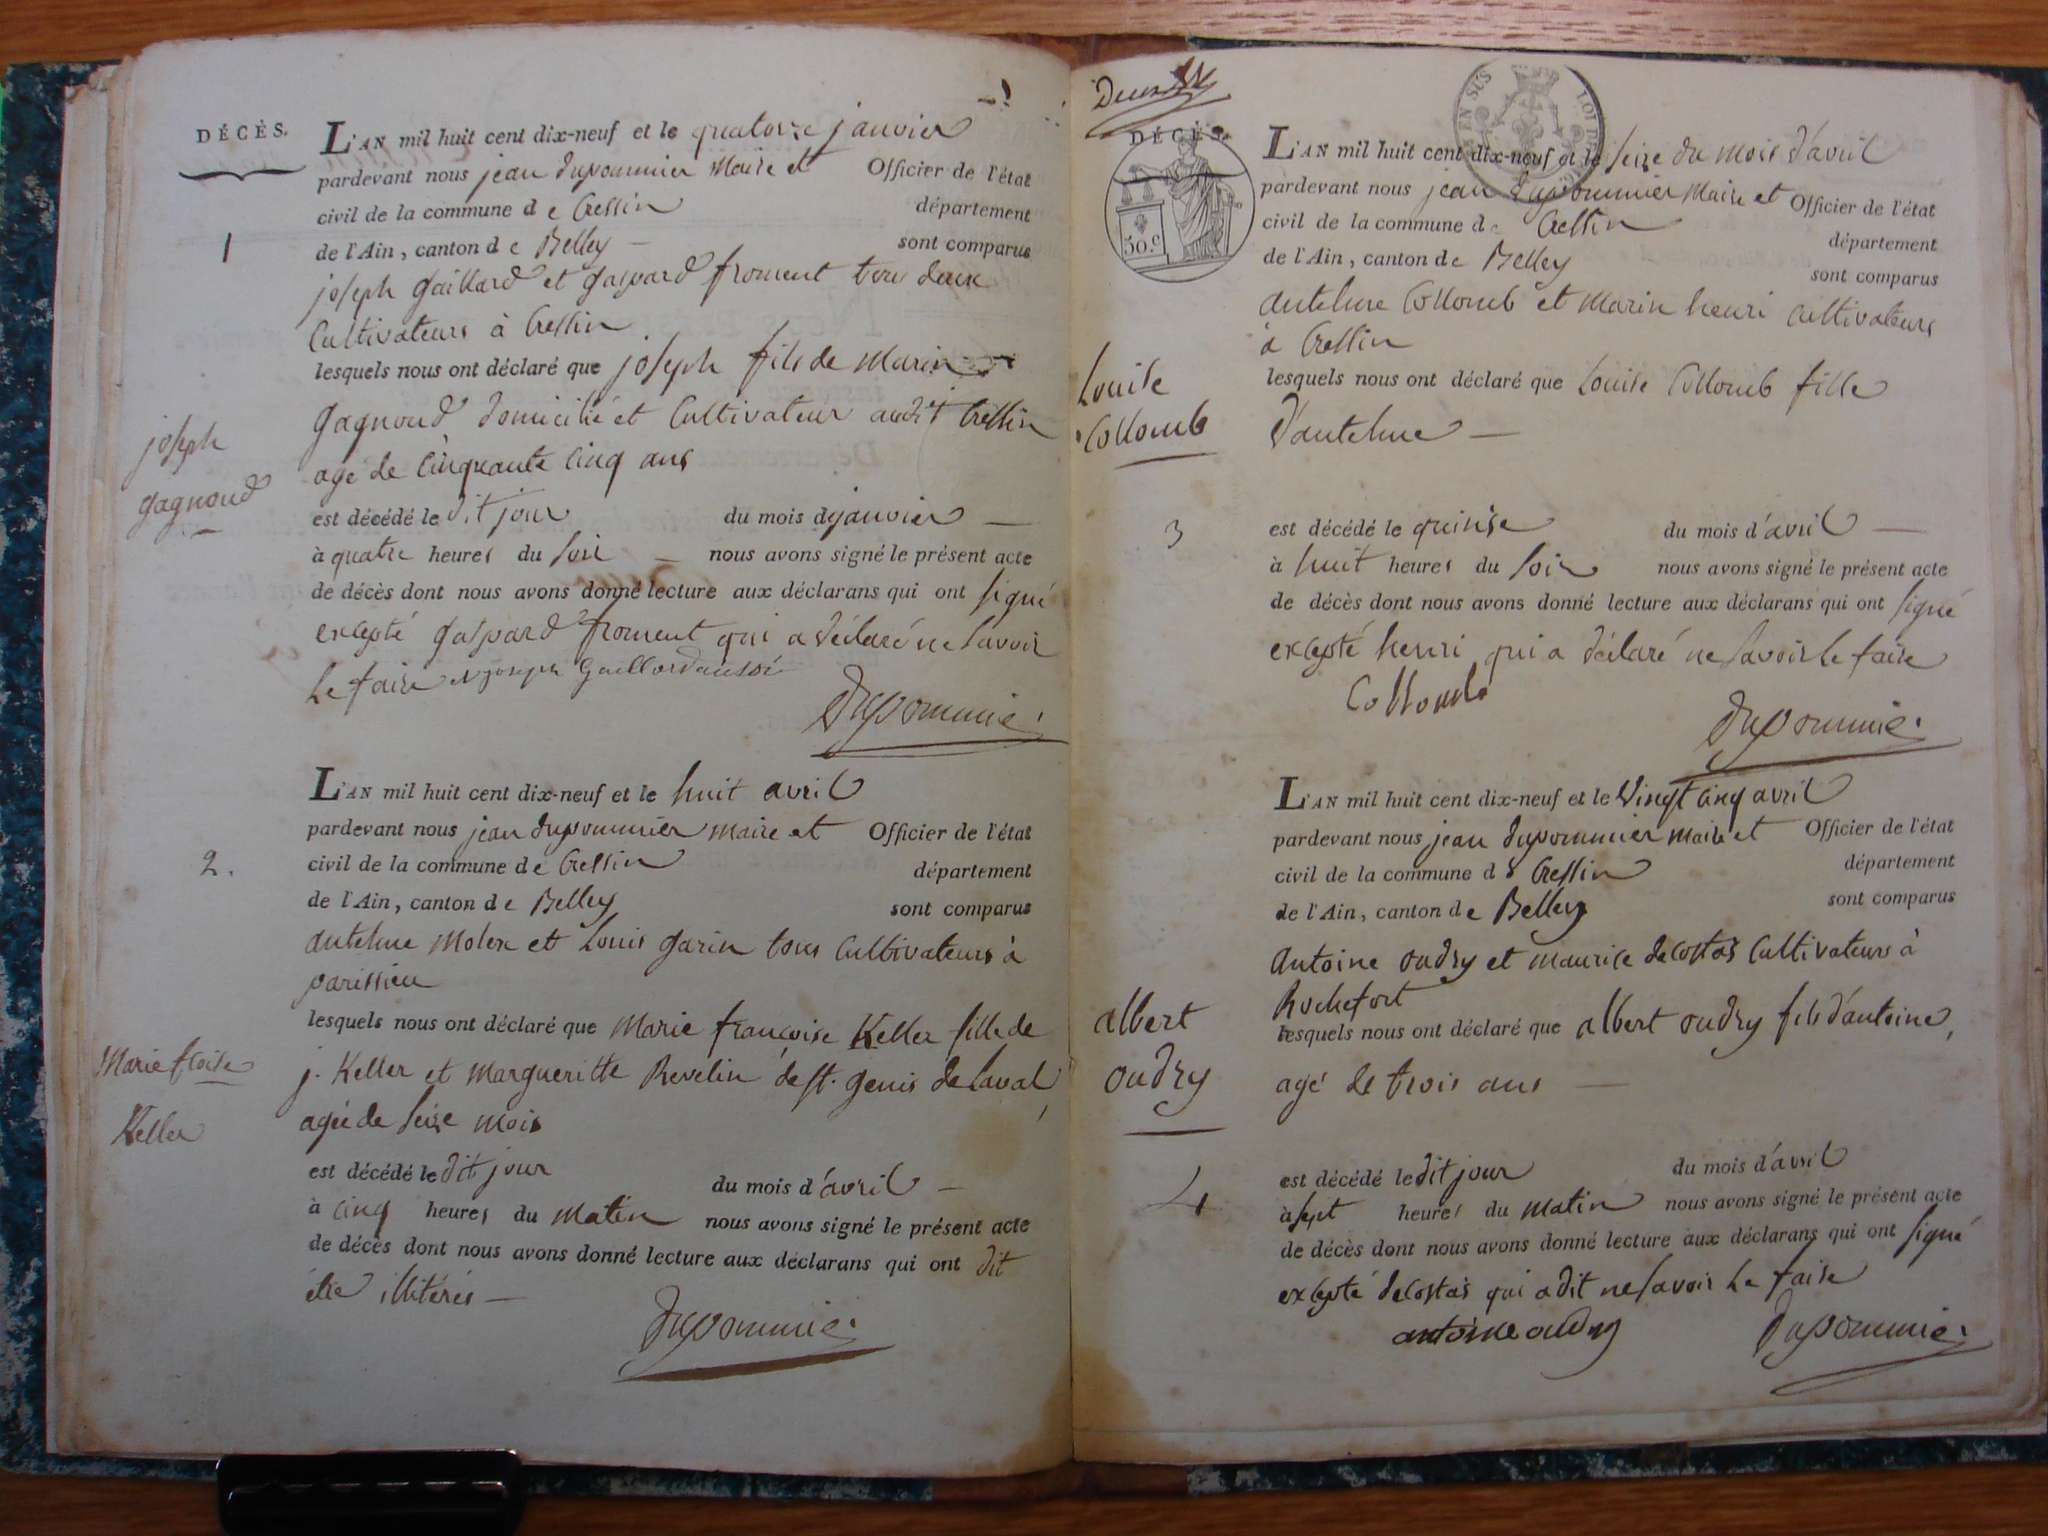 DÉCÈS.
1
L'AN mil huit cent dix-neuf et le quatorze janvier
pardevant nous jean dupommier Maire et Officier de l'état
civil de la commune de Cressin département
de l'Ain, canton de Belley — sont comparus
joseph gaillard et gaspard froment tous deux
Cultivateurs à Cressin
lesquels nous ont déclaré que joseph fils de Marin
joseph
gagnoud
gagnoud domicilié et Cultivateur audit Cressin
agé de Cinquante Cinq ans
est décédé le dit jour du mois d janvier —
à quatre heures du soir — nous avons signé le présent acte
de décès dont nous avons donné lecture aux déclarans qui ont signé
excepté gaspard froment qui a déclaré ne savoir
le faire et joseph Gaillard aussi
Dupommie
2.
L'AN mil huit cent dix-neuf et le huit avril
pardevant nous jean dupommier Maire et Officier de l'état
civil de la commune de Cressin département
de l'Ain, canton de Belley sont comparus
antelme Molex et Louis garin tous Cultivateurs à
parissieu
lesquels nous ont déclaré que Marie françoise Keller fille de
Marie fçoise
Keller
j. Keller et Margueritte Revelin de st. genis de Laval,
agée de seize mois
est décédé le dit jour du mois d'avril —
à cinq heures du matin nous avons signé le présent acte
de décès dont nous avons donné lecture aux déclarans qui ont dit
être illitérés —
Dupommie
Deux
DÉCÈS.
EN SUS
LOI DE
50.c
L'AN mil huit cent dix-neuf et le seize du mois d'avril
pardevant nous jean Dupommier Maire et Officier de l'état
civil de la commune de Cressin département
de l'Ain, canton de Belley sont comparus
antelme Collomb et Marin henri cultivateurs
à Cressin
lesquels nous ont déclaré que Louise Collomb fille
Louise
Collomb
d'antelme —
3
est décédé le quinse du mois d'avril —
à huit heures du soir nous avons signé le présent acte
de décès dont nous avons donné lecture aux déclarans qui ont signé
excepté henri qui a déclaré ne savoir le faire
Collomb
Dupommie
L'AN mil huit cent dix-neuf et le vingt cinq avril
pardevant nous jean dupommier maire et Officier de l'état
civil de la commune de Cressin département
de l'Ain, canton de Belley sont comparus
Antoine oudry et maurice decostas Cultivateurs à
Rochefort
lesquels nous ont déclaré que albert oudry fils d'antoine,
albert
oudry
agé de trois ans —
4
est décédé le dit jour du mois d'avril
à sept heures du matin nous avons signé le présent acte
de décès dont nous avons donné lecture aux déclarans qui ont signé
excepté decostas qui a dit ne savoir le faire
antoine oudry
Dupommie